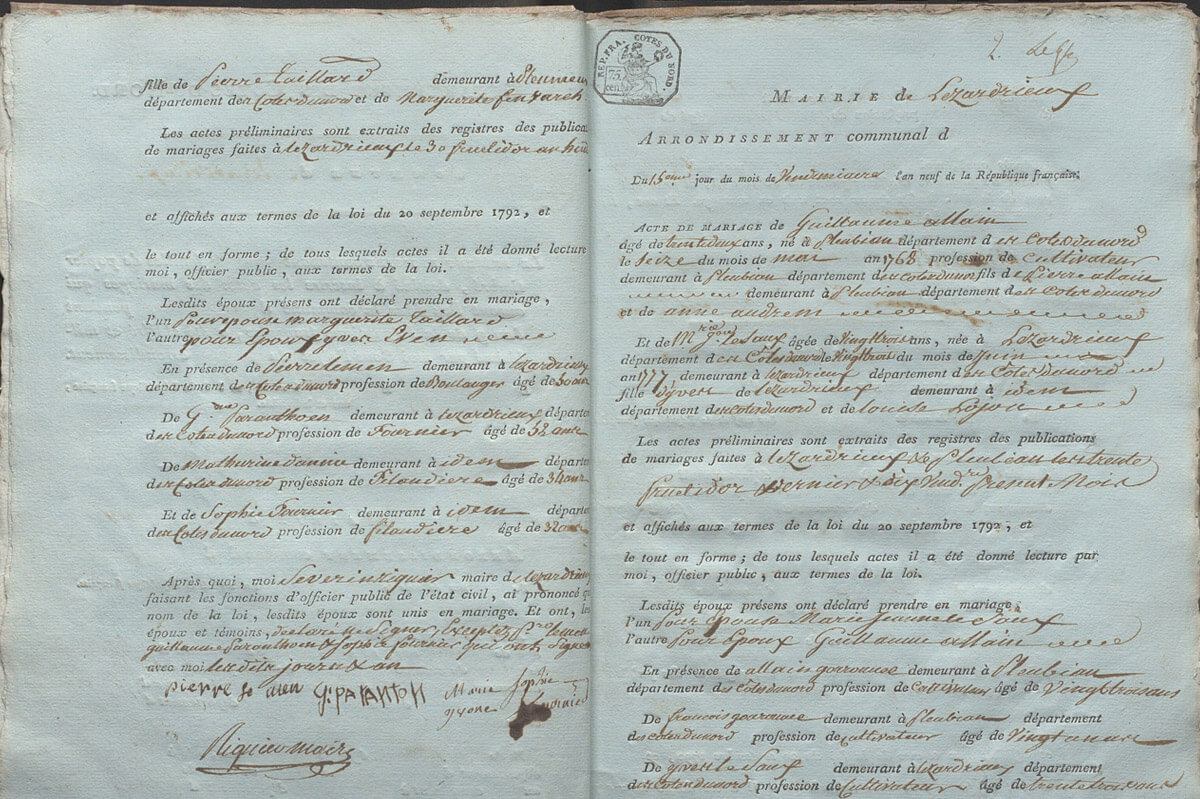 fille de Pierre taillard demeurant à Pleumeur
département des Cotes du nord et de Marguerite
Les actes préliminaires sont extraits des registres des publica
de mariages faites à Lezardrieux le 30 fructidor an huit
et affichés aux termes de la loi du 20 septembre 1792, et
le tout en forme ; de tous lesquels actes il a été donné lecture
moi, officier public, aux termes de la loi.
Lesdits époux présens ont déclaré prendre en mariage,
l'un pour epouse marguerite taillard
l'autre pour Epoux yves Even
En présence de demeurant à Lezardrieux
département des Cotes du nord profession de Boulanger âgé de 30 ans
De demeurant à Lezardrieux départe
des Cotes du nord profession de Fournier âgé de 58 ans
De Mathurine demeurant à idem départe
des Cotes du nord profession de filandiere âgé de 34 ans
Et de Sophie Fournier demeurant à idem départe
des Cotes du nord profession de filandiere âgé de 32 ans
Après quoi, moi maire de Lezardrieux
faisant les fonctions d'officier public de l'état civil, ai prononcé q
nom de la loi, lesdits époux sont unis en mariage. Et ont, les
époux et témoins, declaré ne Signer, Exceptés
guillaume & Sophie fournier qui ont Signé
avec moi les dits jour et an
pierre
Marie Sophie
yvone
maire
REP. FRA. COTES DU NORD.
75 cen.
2
MAIRIE de Lezardrieux
ARRONDISSEMENT communal d
Du 15eme jour du mois de Vendemiaire l'an neuf de la République française.
ACTE DE MARIAGE de Guillaume allain
âgé de trente deux ans, né à Pleubian département des Cotes du nord
le seize du mois de mai an 1768 profession de Cultivateur
demeurant à Pleubian département des Cotes du nord fils de Pierre allain
demeurant à Pleubian département des Cotes du nord
et de anne
Et de Mrie le saux âgée de vingt trois ans, née à Lezardrieux
département des Cotes du nord le vingt trois du mois de juin
an 1777 demeurant à Lezardrieux département des Cotes du nord
fille d'yves de Lezardrieux demeurant à idem
département des Cotes du nord et de louise
Les actes préliminaires sont extraits des registres des publications
de mariages faites à Lezardrieux & Pleubian les trente
fructidor dernier & dix Vendre. present Mois
et affichés aux termes de la loi du 20 septembre 1792, et
le tout en forme ; de tous lesquels actes il a été donné lecture par
moi, officier public, aux termes de la loi.
Lesdits époux présens ont déclaré prendre en mariage,
l'un pour epouse Marie jeanne le Saux
l'autre pour Epoux Guillaume allain
En présence de allain demeurant à Pleubian
département des Cotes du nord profession de Cultivateur âgé de Vingt trois ans
De francois demeurant à Pleubian département
des Cotes du nord profession de Cultivateur âgé de Vingt
De yves le Saux demeurant à Lezardrieux département
des Cotes du nord profession de Cultivateur âgé de trente trois ans